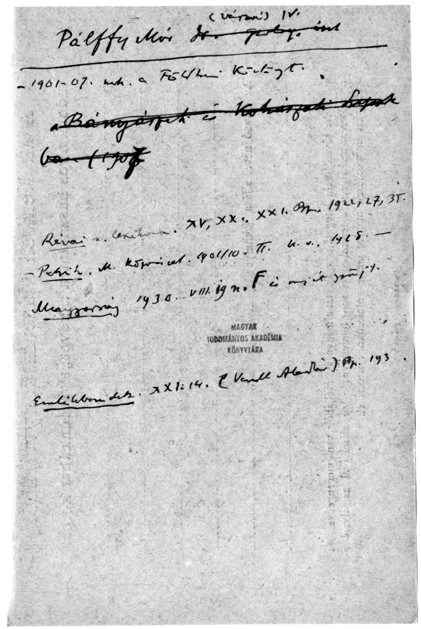 (várai) IV.
Pálffy Mór
- 1901-07. a Földtani Közlönyt.
a Bányászati és Kohászati Lapok
ban (1907
Révai n. lexikona. XV, XX. XXI. Bp. 1922, 27, 35.
- Petrik. M. Könyvészet. 1901/10. II. U. o., 1928. —
Magyarság 1930. VIII. 19 n. F és saját gyűjt.
MAGYAR
TUDOMÁNYOS AKADÉMIA
KÖNYVTÁRA
Emlékbeszédek. XXI: 14. (Vendl Aladár) Bp. 193 .